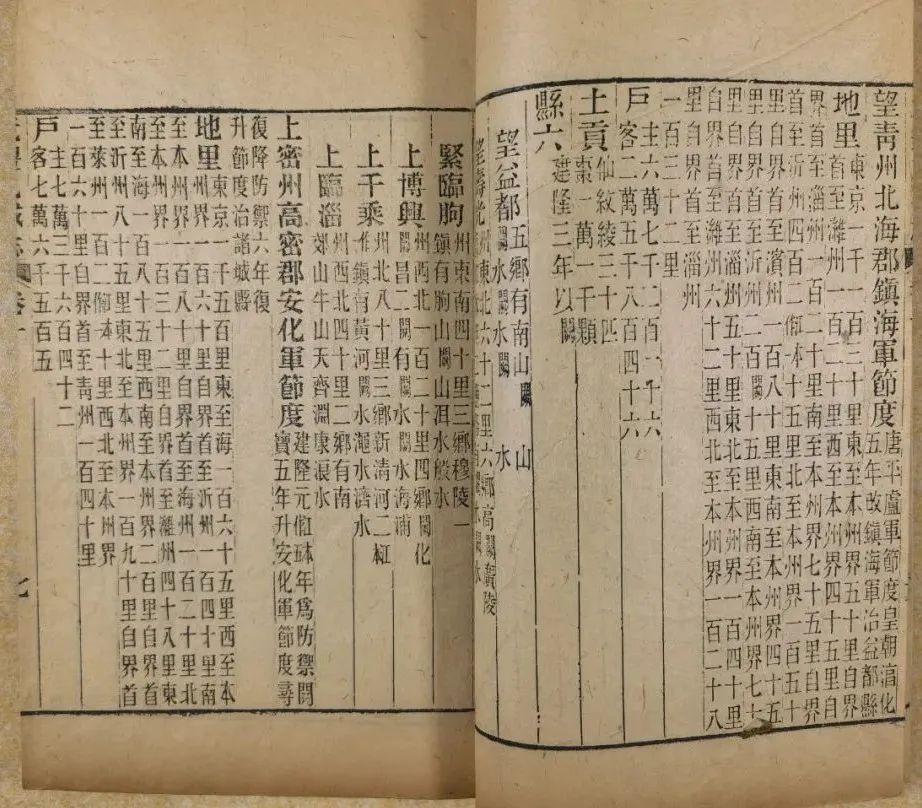 望青州北海郡鎮海軍節度唐平盧軍節度皇朝淳化
五年改鎮海軍治益都縣
地里東京一千一百三十里東至本州界五十里自界
首至濰州一百一十里西至本州界四十五里自
界首至淄州一百二十里南至本州界七十五里自界
首至沂州四百二十五里北至本州界一百五十
里自界首至濱州一百七十里東南至本州四十五
里自界首至沂州二百闕十五里西南至本州界七十
里自界首至淄州五十里東北至本州界一百四十里
自界首至濰州十二里西北至本州界一百二十八
里自界首至淄州
一百三十二里
戶主六萬七千二百一十六
客二萬五千八百四十六
土貢仙紋綾三十匹
棗一千顆
縣六建隆三年以闕
望益都五鄉有南山闕山
闕水闕水闕水
望壽光州東北六十二里六鄉高闕廣陵
緊臨朐州東南四十里三鄉穆陵一
鎮有朐山闕山洱水般水
上博興州西北一百二十里四鄉闕化
闕昌二闕有闕水闕水海浦
上千乘州北八十里三鄉新清河二
鎮有黃河闕水濟水
上臨淄州西北四十里二鄉有南
郊山牛山天齊淵康浪水
上密州高密郡安化軍節度建隆元年為防禦開
寶五年升安化軍節度尋
復降防禦六年復
升節度治諸城縣
地里東京一千五百里東至海一百六十五里西至本
州界一百八十里自界首至沂州一百四十里南
至本州界一百三十二里自界首至海州一百二十里北
至本州界一百二十里自界首至濰州四十八里東
南至海一百八十五里西南至本州界二百里自界首
至沂州八十五里東北至本州界一百九十里自界首
至萊州一百二十里西北至本州界
一百六十里自界首至青州一百四十里
戶主七萬三千六百四十二
客七萬六千五百五